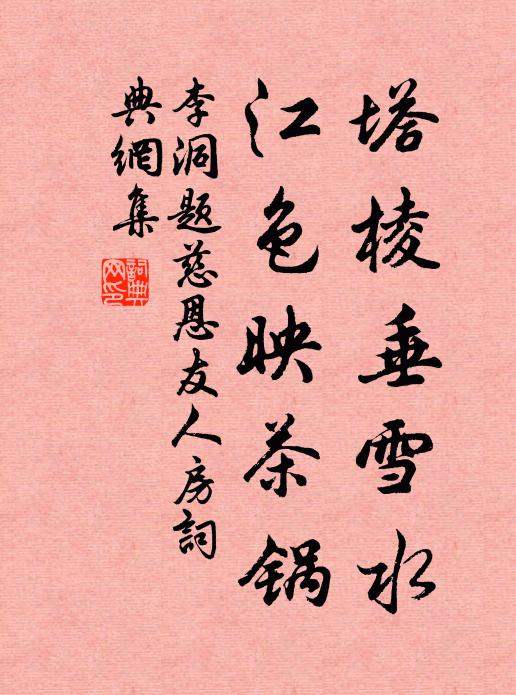 塔棱垂雪水
江色映茶锅
李洞题慈恩友人房詞
典網集
詞典
网印